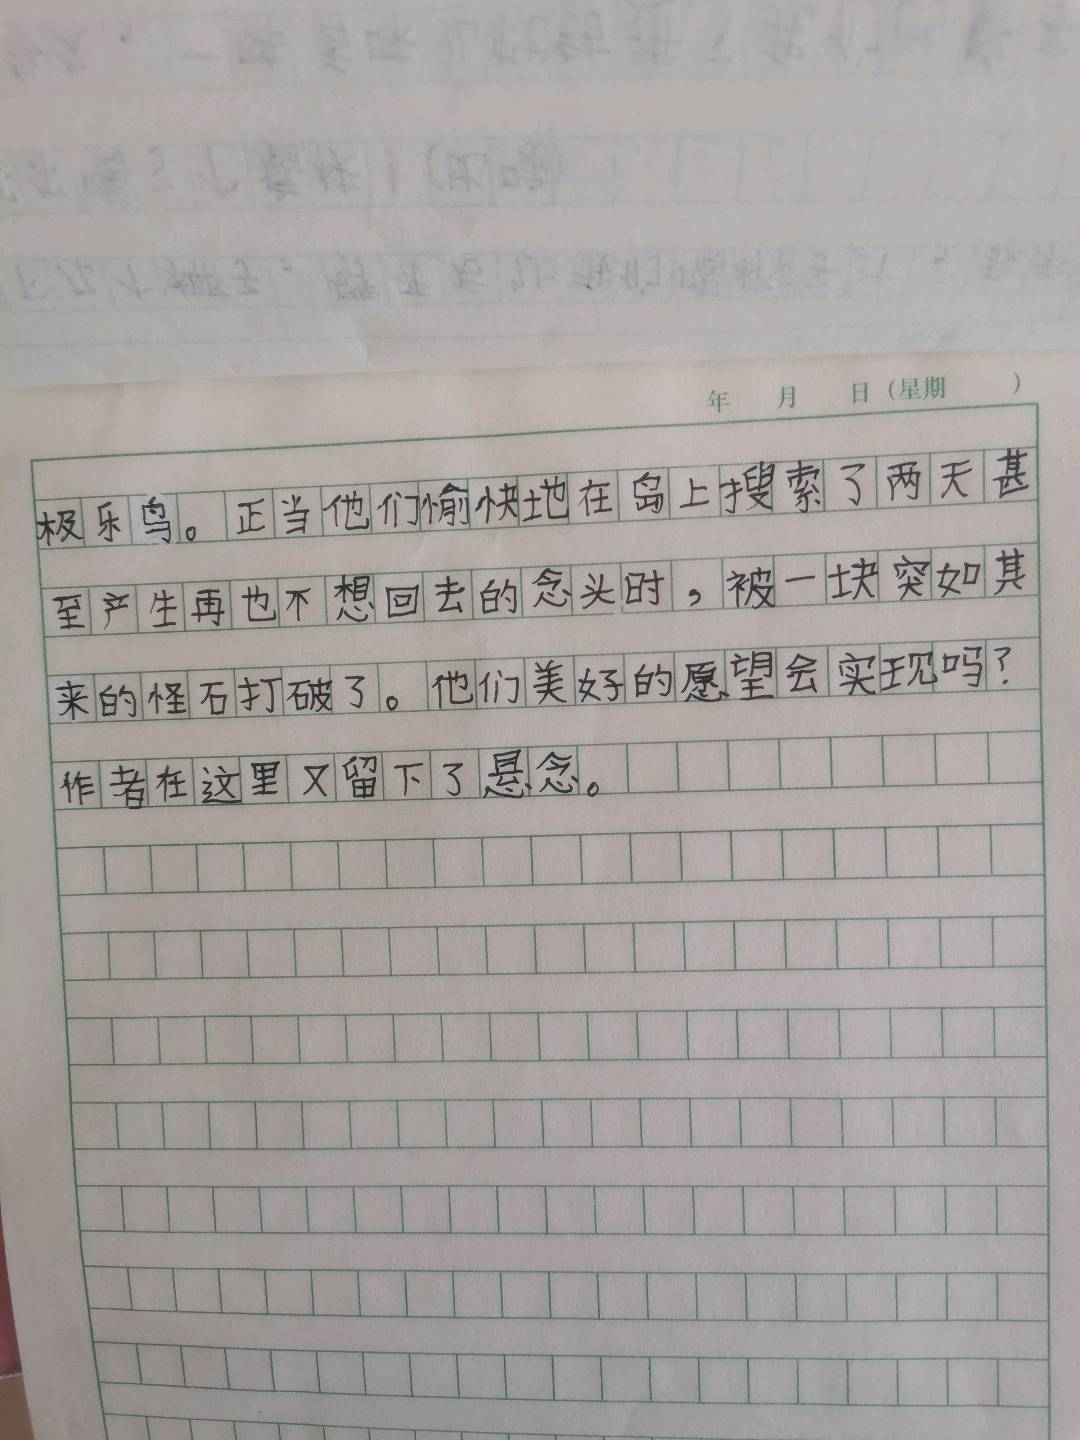 年 月 日（星期 ）
极乐鸟。正当他们愉快地在岛上搜索了两天甚
至产生再也不想回去的念头时，被一块突如其
来的怪石打破了。他们美好的愿望会实现吗？
作者在这里又留下了悬念。